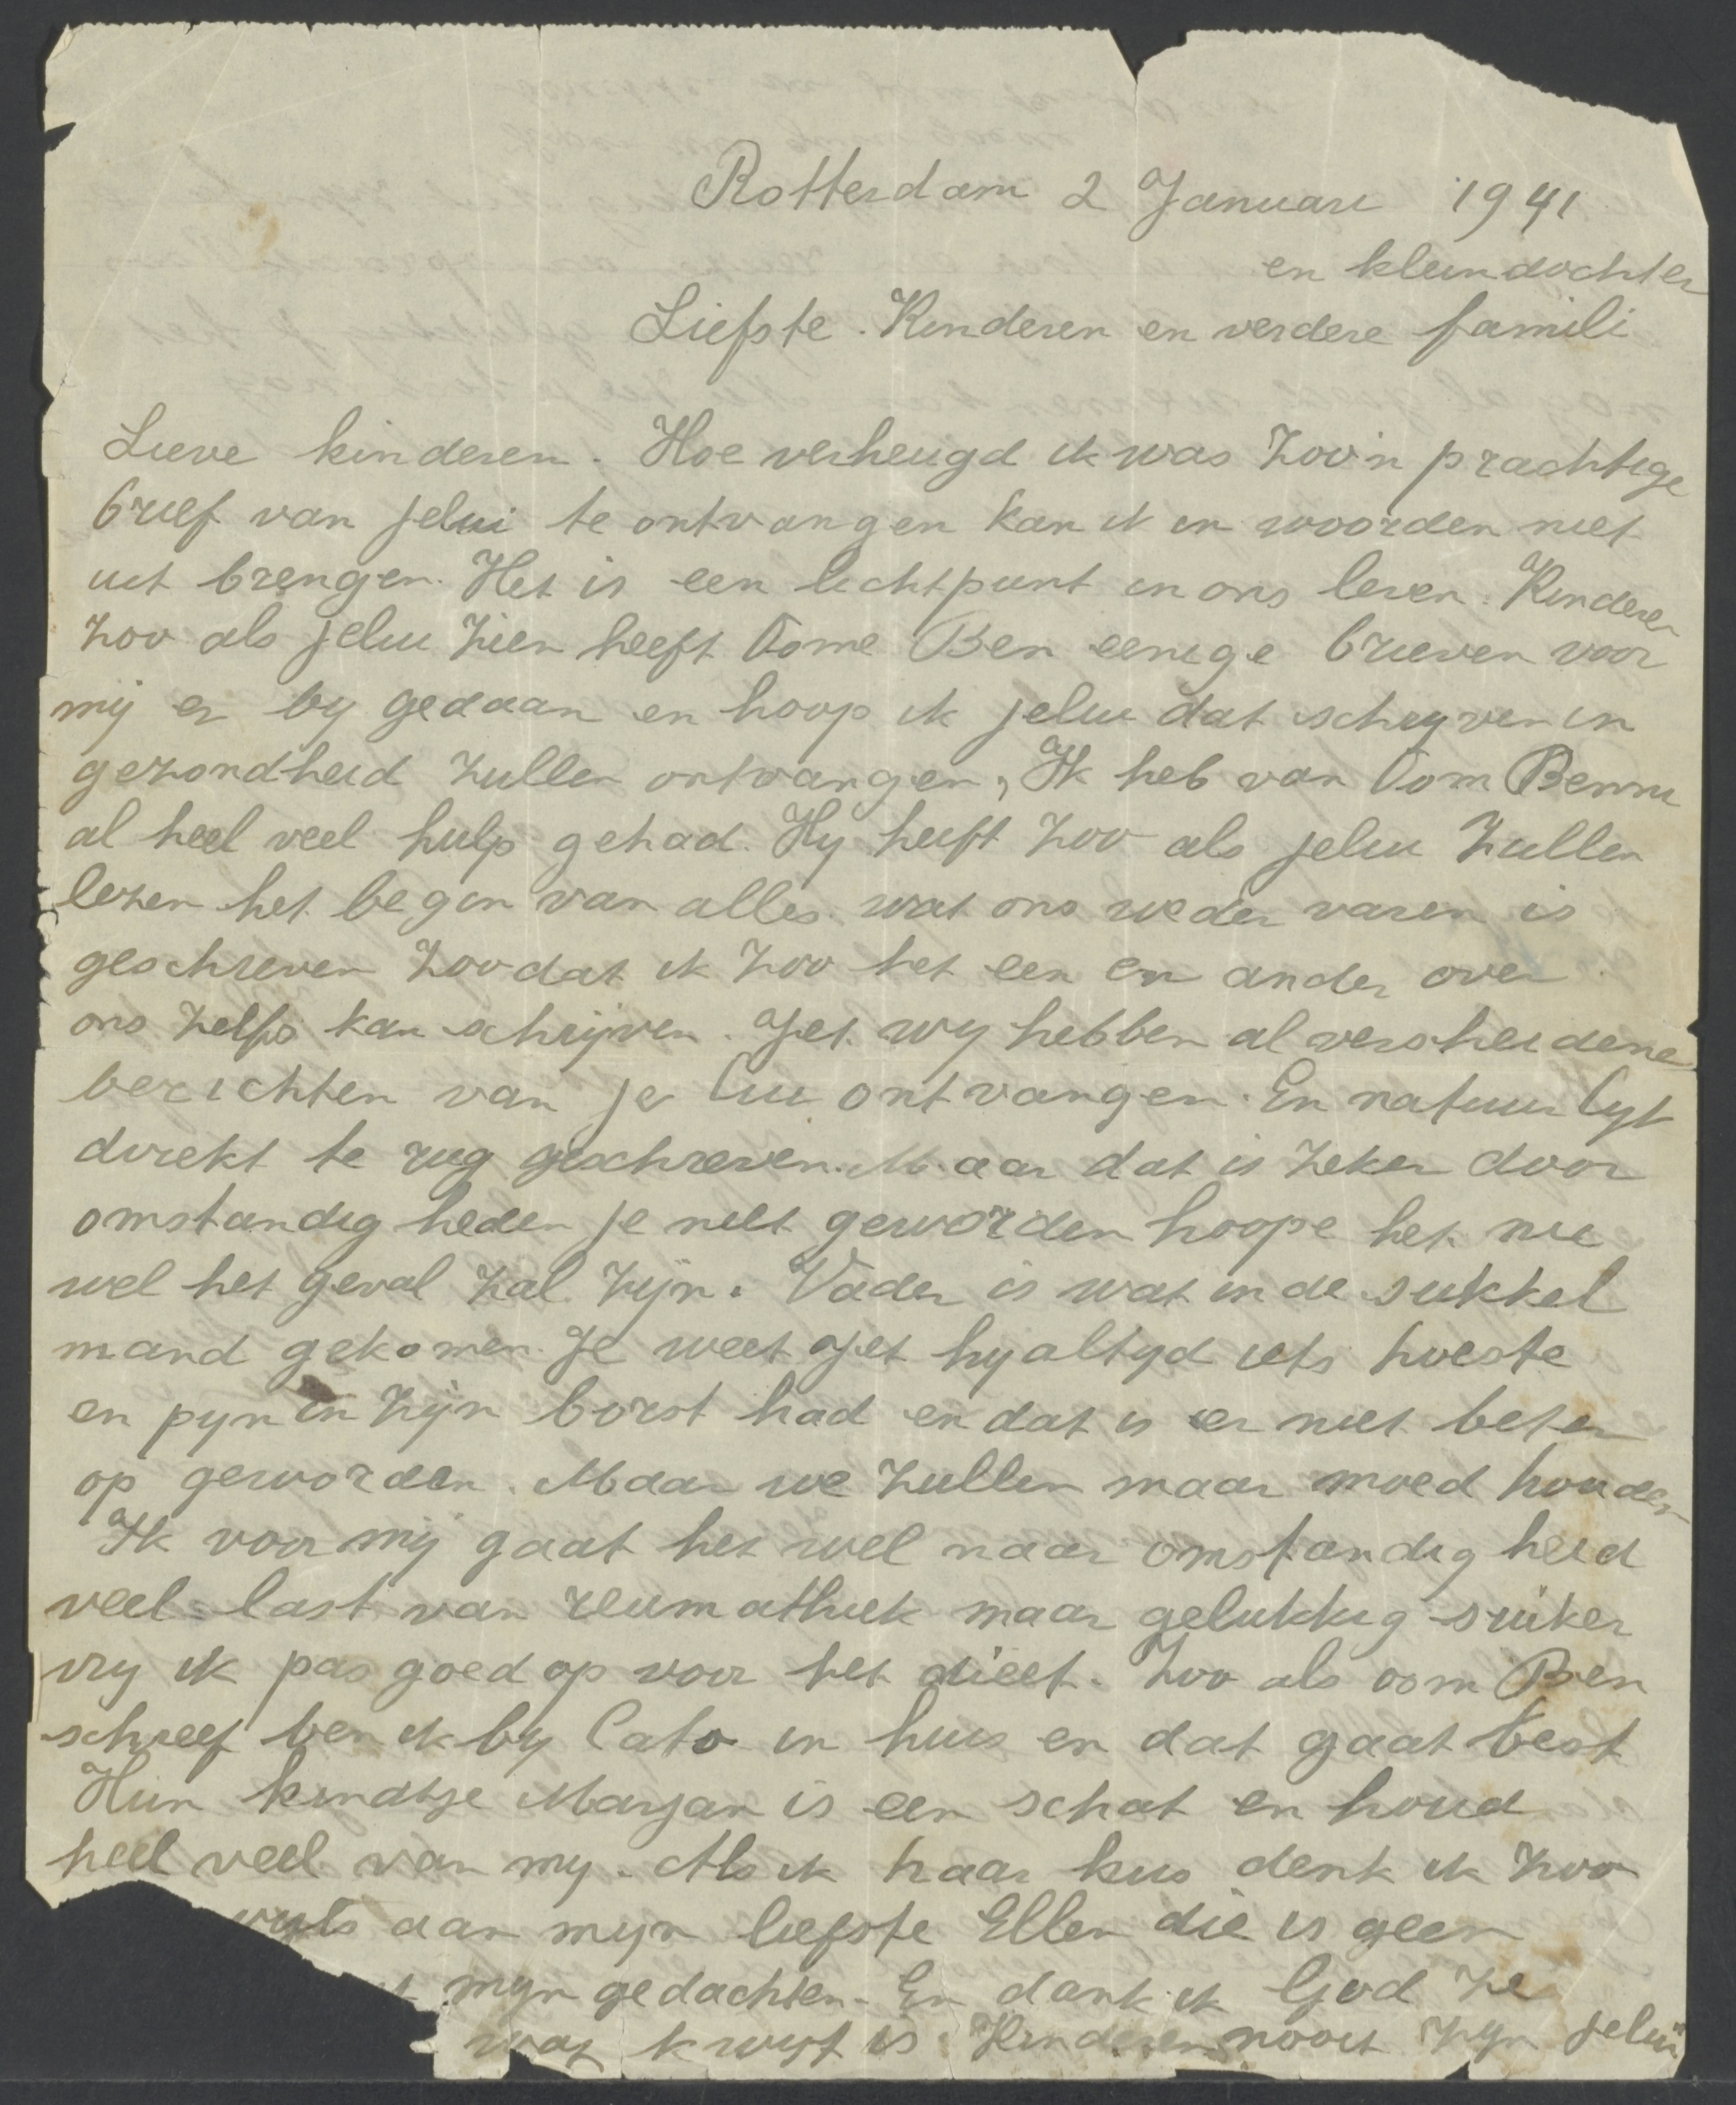 Rotterdam 2 Januari 1941
en kleindochter
Liefste. Kinderen en verdere famili
Lieve kinderen. Hoe verheugd ik was Zoo'n prachtige
brief van jelui te ontvangen kan ik in woorden niet
uit brengen. Het is een lichtpunt in ons leven. Kinderen
Zoo als jelui Zien heeft Oome Ben eenige brieven voor
mij er by gedaan en hoop ik jelui dat schryven in
gezondheid Zullen ontvangen, Ik heb van Oom Benni
al heel veel hulp gehad. Hy heeft Zoo als jelui Zullen
lezen het begin van alles wat ons weder varen is
geschreven Zoodat ik Zoo het een en ander over
ons Zelfs kan schrijven. Jet wy hebben al verscheidene
berichten van je lui ontvangen. En natuurlyk
direkt te rug geschreven. Maar dat is Zeker door
omstandig heden je niet geworden hoope het nu
wel het geval Zal Zijn. Vader is wat in de sukkel
mand gekomen. Je weet Jet hy altyd iets hoeste
en pyn in Zijn borst had en dat is er niet beter
op geworden. Maar we Zullen maar moed houden
Ik voor mij gaat het wel naar omstandig heid
veel last van reumathiek maar gelukkig suiker
vry ik pas goed op voor het dieet. Zoo als oom Ben
schreef ben ik by Cato in huis en dat gaat best
Hun kindtje Marjan is een schat en houd
heel veel van my. Als ik haar kus denk ik Zoo
aan myn liefste Ellen die is geen
myn gedachten. En dank ik God Ze
wat kwyt is. Kinderen nooit Zyn jelui